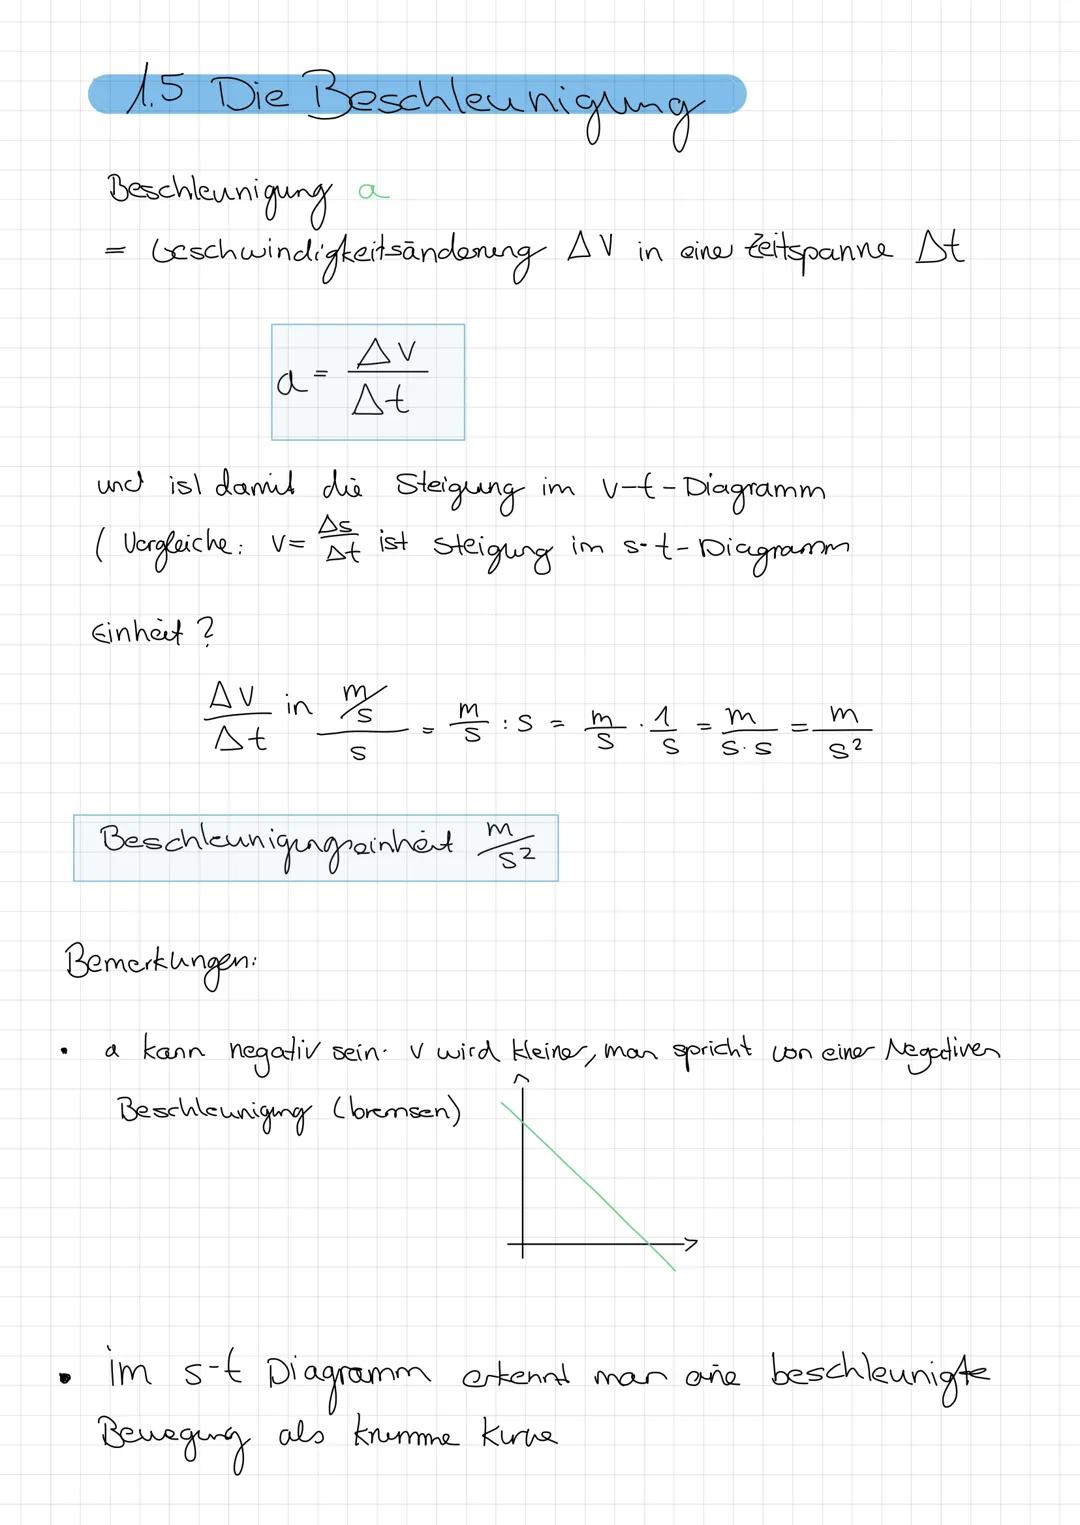 1.5 Die Beschleunigung
Beschleunigung a
= Geschwindigkeitsänderung ΔV in einer Zeitspanne Δt
a = ΔV/Δt
und ist damit die Steigung im v-t-Diagramm
( Vergleiche: V= Δs/Δt ist Steigung im s-t-Diagramm
Einheit ?
ΔV/Δt in (m/s)/s = m/s : s = m/s · 1/s = m/(s·s) = m/s²
Beschleunigungseinheit m/s²
Bemerkungen:
• a kann negativ sein. v wird kleiner, man spricht von einer Negativen
Beschleunigung (bremsen)
• im s-t Diagramm erkennt man eine beschleunigte
Bewegung als krumme Kurve